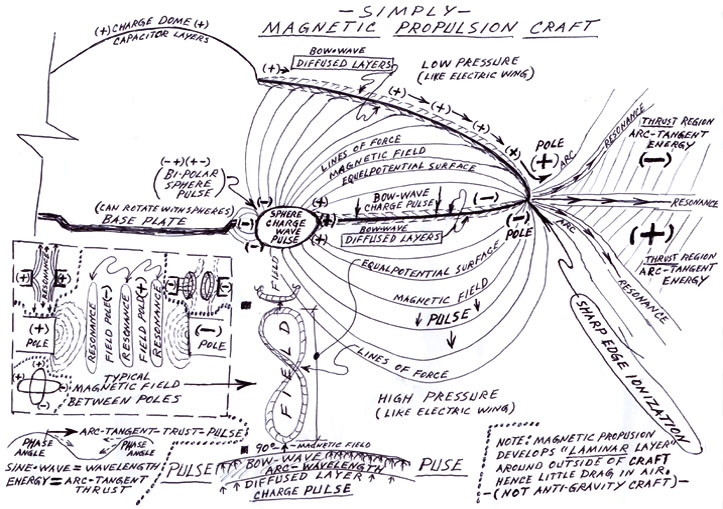 —SIMPLY—
MAGNETIC PROPULSION CRAFT
(+) CHARGE DOME (+)
CAPACITOR LAYERS
BOW-WAVE
(+)→ DIFFUSED LAYERS
LOW PRESSURE
(LIKE ELECTRIC WING)
(+) (+) (+) (+) (+)
LINES OF FORCE
MAGNETIC FIELD
EQUELPOTENTIAL SURFACE
POLE
(+)
ARC
RESONANCE
THRUST REGION
ARC-TANGENT
ENERGY
(−)
RESONANCE
(+)
THRUST REGION
ARC-TANGENT
ENERGY
ARC
RESONANCE
(−+)(+−)
BI-POLAR
SPHERE
PULSE
(CAN ROTATE WITH SPHERES)
BASE PLATE
(−)
(−)
(−)
(+)
(+)
(+)
SPHERE
CHARGE
WAVE
PULSE
BOW-WAVE
CHARGE PULSE
(−)
BOW-WAVE
DIFFUSED LAYERS
(−)
POLE
EQUALPOTENTIAL SURFACE
MAGNETIC FIELD
↓ PULSE ↓
LINES OF FORCE
SHARP EDGE IONIZATION
HIGH PRESSURE
(LIKE ELECTRIC WING)
RESONANCE
(+)
POLE
RESONANCE
FIELD POLE(−)
RESONANCE
FIELD POLE(+)
RESONANCE
(−)
POLE
TYPICAL
MAGNETIC FIELD
BETWEEN POLES
(+) (+)
(−)
FIELD
90° — MAGNETIC FIELD
ARC-TANGENT-TRUST-PULSE
PHASE
ANGLE
PHASE
ANGLE
SINE-WAVE = WAVELENGTH
ENERGY = ARC-TANGENT
THRUST
PULSE
BOW-WAVE
ARC-WAVELENGTH
DIFFUSED LAYER
CHARGE PULSE
PUSE
NOTE: MAGNETIC PROPUSION
DEVELOPS "LAMINAR LAYER"
AROUND OUTSIDE OF CRAFT
HENCE LITTLE DRAG IN AIR.
—(NOT ANTI-GRAVITY CRAFT)—